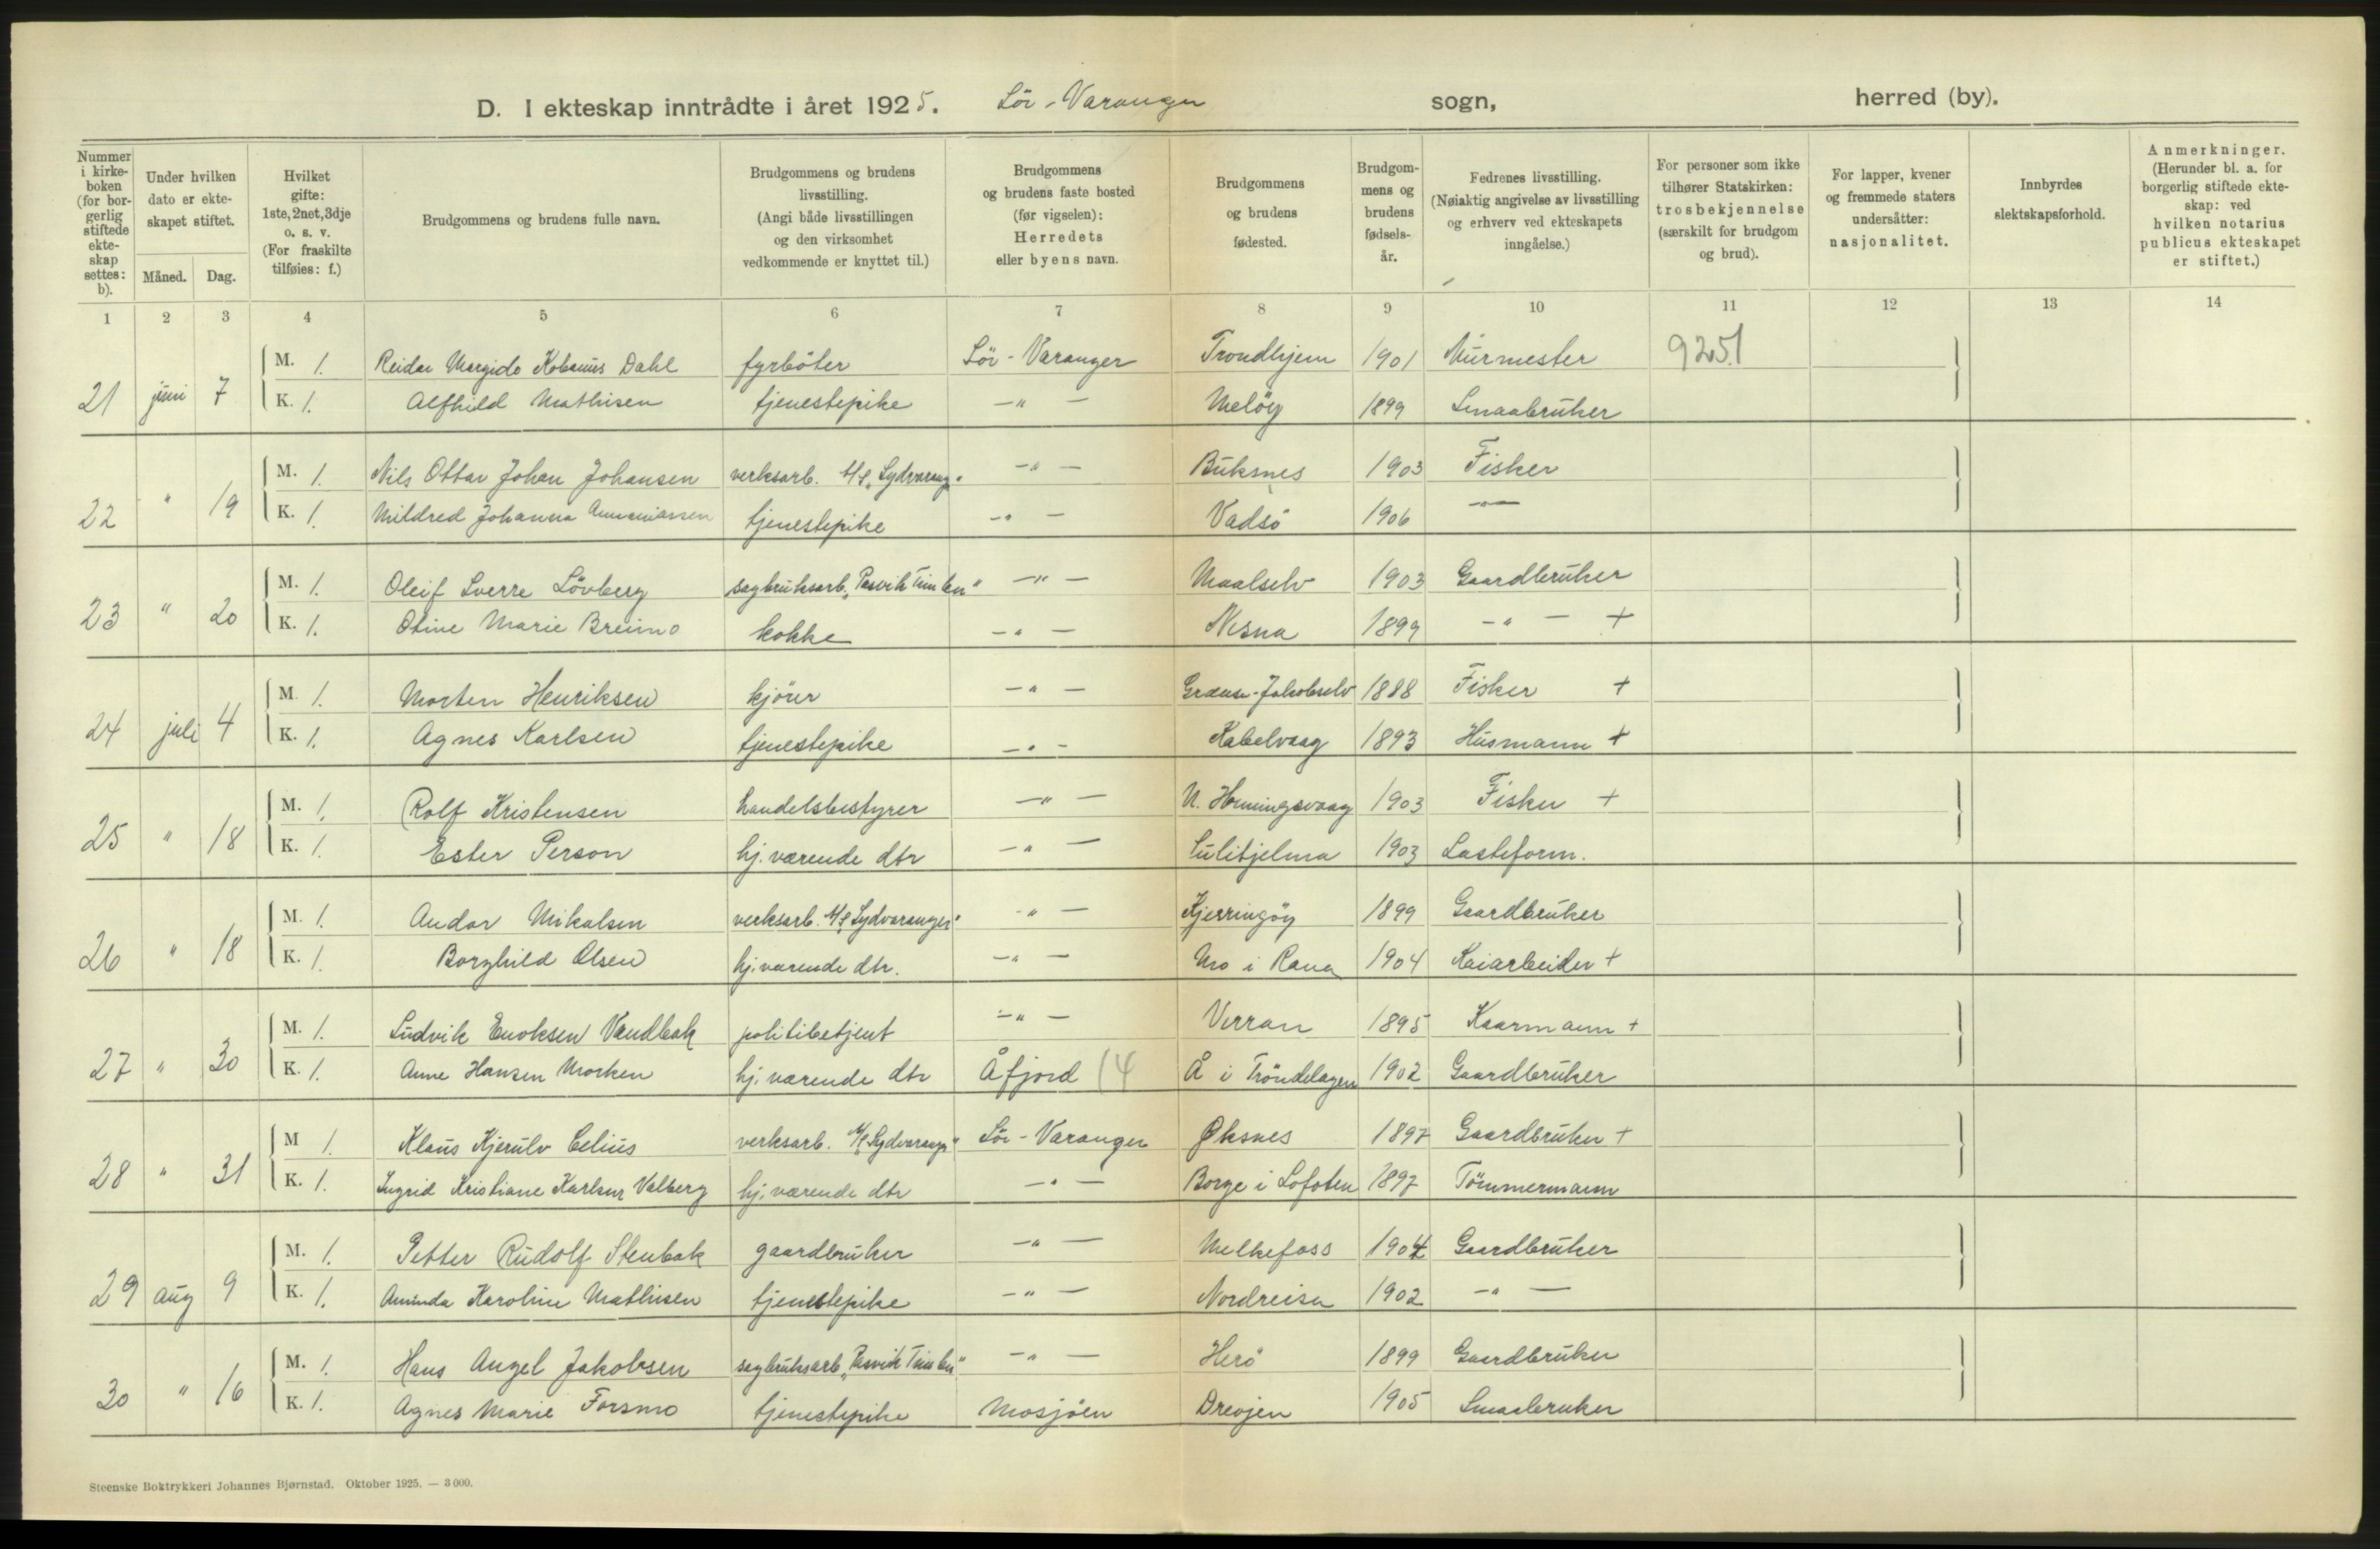 D. I ekteskap inntrådte i året 1925. Sör-Varanger sogn, herred (by).
Nummer i kirke-boken (for bor-gerlig stiftede ekte-skap settes: b).
Under hvilken dato er ekte-skapet stiftet.
Måned. Dag.
Hvilket gifte: 1ste, 2net, 3dje o. s. v. (For fraskilte tilføies: f.)
Brudgommens og brudens fulle navn.
Brudgommens og brudens livsstilling. (Angi både livsstillingen og den virksomhet vedkommende er knyttet til.)
Brudgommens og brudens faste bosted (før vigselen): Herredets eller byens navn.
Brudgommens og brudens fødested.
Brudgom-mens og brudens fødsels-år.
Fedrenes livsstilling. (Nøiaktig angivelse av livsstilling og erhverv ved ekteskapets inngåelse.)
For personer som ikke tilhører Statskirken: trosbekjennelse (særskilt for brudgom og brud).
For lapper, kvener og fremmede staters undersåtter: nasjonalitet.
Innbyrdes slektskapsforhold.
Anmerkninger. (Herunder bl. a. for borgerlig stiftede ekte-skap: ved hvilken notarius publicus ekteskapet er stiftet.)
1 2 3 4 5 6 7 8 9 10 11 12 13 14
M. 1. Reidar Dahl fyrböter Sör-Varanger Trondhjem 1901 Murmester 9251
21 juni 7 K. 1. Alfhild Mathisen tjenestepike -"- Melöy 1899 Smaabruker
M. 1. Nils Ottar Johan Johansen verksarb. A/S "Sydvarang." -"- Buksnes 1903 Fisker
22 " 19 K. 1. Mildred Johanna Annaniassen tjenestepike -"- Vadsö 1906 -"-
M. 1. Oleif Sverre Lövberg sagbruksarb. "Pasvik Timber" -"- Maalselv 1903 Gaardbruker
23 " 20 K. 1. Otine Marie Breimo kokke -"- Nesna 1899 -"- +
M. 1. Morten Henriksen kjörer -"- Grænse-Jakobselv 1888 Fisker +
24 juli 4 K. 1. Agnes Karlsen tjenestepike -"- Kabelvaag 1893 Husmann +
M. 1. Rolf Kristensen handelsbestyrer -"- N. Honningsvaag 1903 Fisker +
25 " 18 K. 1. Ester Person hj. værende dtr -"- Sulitjelma 1903 Lasteform.
M. 1. Andor Mikalsen verksarb. A/S Sydvaranger" -"- Kjerringöy 1899 Gaardbruker
26 " 18 K. 1. Borghild Olsen hj. værende dtr. -"- Mo i Rana 1904 Kaiarbeider +
M. 1. Ludvik Enoksen Vandbak politibetjent -"- Verran 1895 Kaarmann +
27 " 30 K. 1. Anne Hansen Morken hj. værende dtr Åfjord 14 Å i Tröndelagen 1902 Gaardbruker
M 1. Klaus Kjerulv Celius verksarb. A/S Sydvarang." Sör-Varanger Øksnes 1897 Gaardbruker +
28 " 31 K. 1. Ingrid Kristiane Karlsen Valberg hj. værende dtr -"- Borge i Lofoten 1897 Tömmermann
M. 1. Petter Rudolf Stenbak gaardbruker -"- Melkefoss 1904 Gaardbruker
29 aug 9 K. 1. Aminda Karoline Mathisen tjenestepike -"- Nordreisa 1902 -"-
M. 1. Hans Angel Jakobsen sagbruksarb. "Pasvik Timber" -"- Herö 1899 Gaardbruker
30 " 16 K. 1. Agnes Marie Forsmo tjenestepike Mosjöen Drevjen 1905 Smaabruker
Steenske Boktrykkeri Johannes Bjørnstad. Oktober 1925. — 3 000.